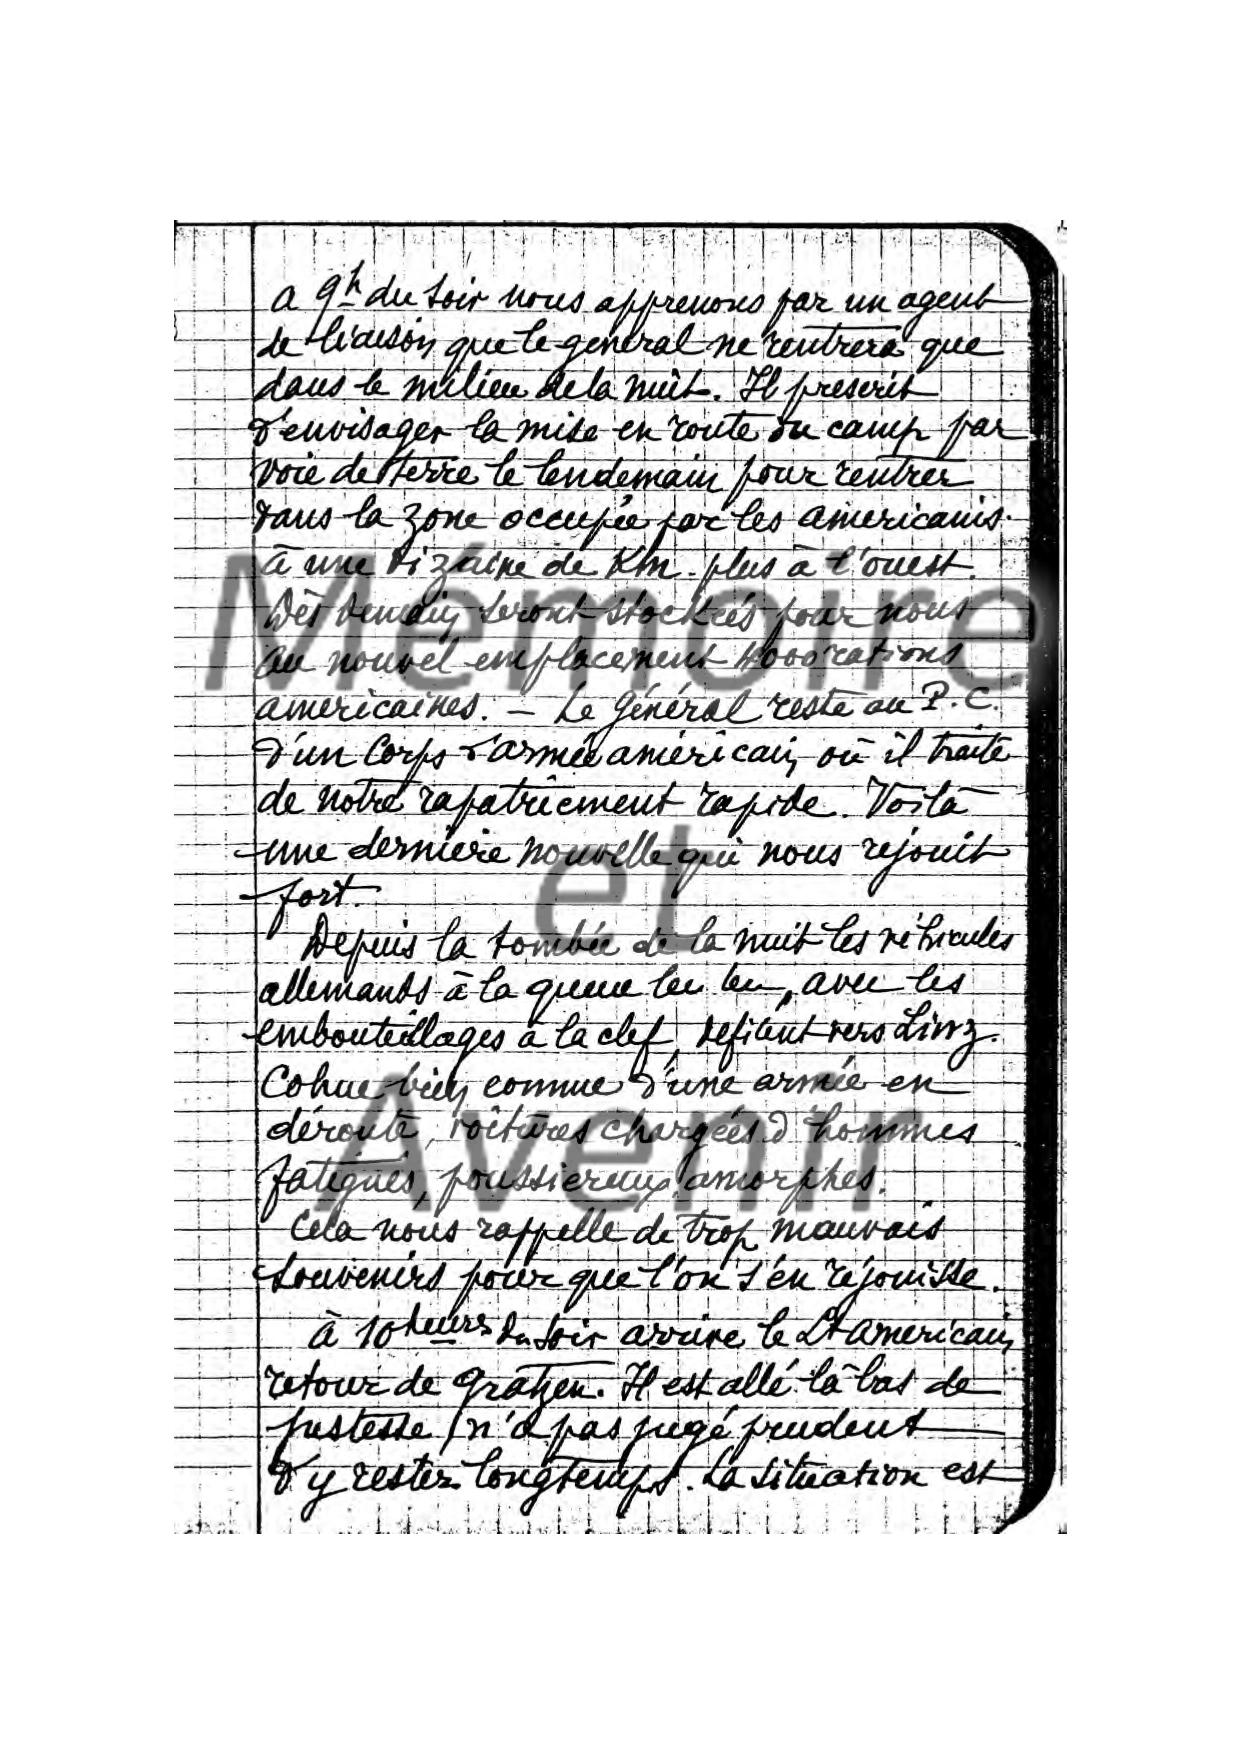 a 9h du soir nous apprenons par un agent
de liaison que le général ne rentrera que
dans le milieu de la nuit. Il prescrit
d'envisager la mise en route du camp par
voie de terre le lendemain pour rentrer
dans la zone occupée par les américains
à une dizaine de Km plus à l'ouest.
Dès demain seront stockées pour nous
au nouvel emplacement 4000 rations
américaines. — Le Général reste au P.C.
d'un Corps d'armée américain, où il traite
de notre rapatriement rapide. Voilà
une dernière nouvelle qui nous réjouit
fort.
Depuis la tombée de la nuit les véhicules
allemands à la queue leu leu, avec les
embouteillages à la clef, défilent vers Linz.
Cohue bien connue d'une armée en
déroute, voitures chargées d'hommes
fatigués, poussiereux, amorphes.
Cela nous rappelle de trop mauvais
souvenirs pour que l'on s'en réjouisse.
à 10 heures du soir arrive le Lt américain,
retour de Gratzen. Il est allé là bas de
justesse, n'a pas jugé prudent
d'y rester longtemps. La situation est
Mémoire
et
Avenir